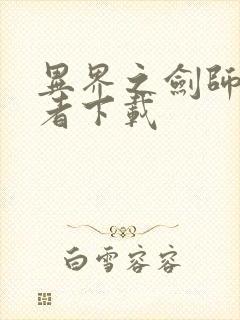 異界之劍師
者下載
白雪容容